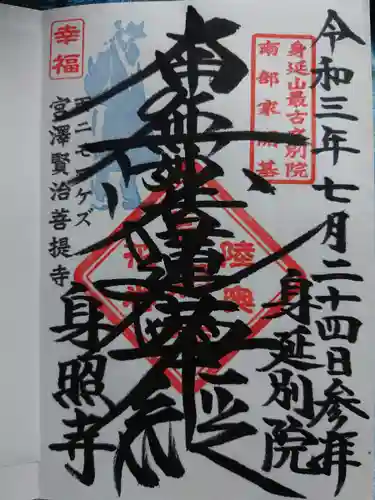 令和三年七月二十四日参拝
身延山最古之別院
南部家開基
身延別院
南無妙法蓮華経
陸奥
幸福
アメニモマケズ
宮澤賢治菩提寺
身照寺